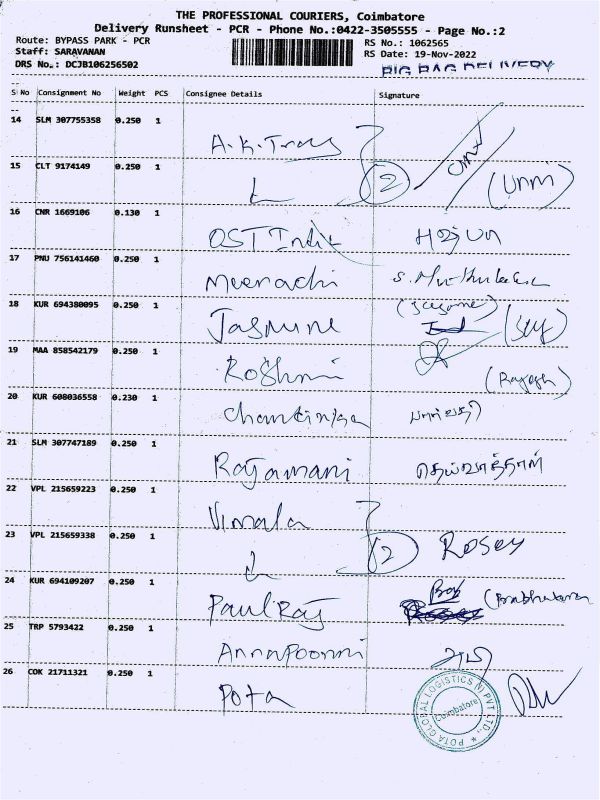 THE PROFESSIONAL COURIERS, Coimbatore
Delivery Runsheet - PCR - Phone No.:0422-3505555 - Page No.:2
Route: BYPASS PARK - PCR
RS No.: 1062565
Staff: SARAVANAN
RS Date: 19-Nov-2022
DRS No.: DCJB106256502
BIG BAG DELIVERY
S No Consignment No Weight PCS Consignee Details Signature
14 SLM 307755358 0.250 1 A.K.
15 CLT 9174149 0.250 1 2 (Unni)
16 CNR 1669106 0.130 1 OST India
17 PNU 756141460 0.250 1 Meenachi
18 KUR 694380095 0.250 1 Jasmine
19 MAA 858542179 0.250 1 Roshmi (Rajesh)
20 KUR 608036558 0.230 1
21 SLM 307747189 0.250 1 Rajamani தெய்வாத்தாள்
22 VPL 215659223 0.250 1 Vimala
23 VPL 215659338 0.250 1 2 Rosey
24 KUR 694109207 0.250 1 Paul Raj
25 TRP 5793422 0.250 1 Annapoorni
26 COK 21711321 0.250 1 Pota
POTA GLOBAL LOGISTICS (I) PVT LTD.,
Coimbatore